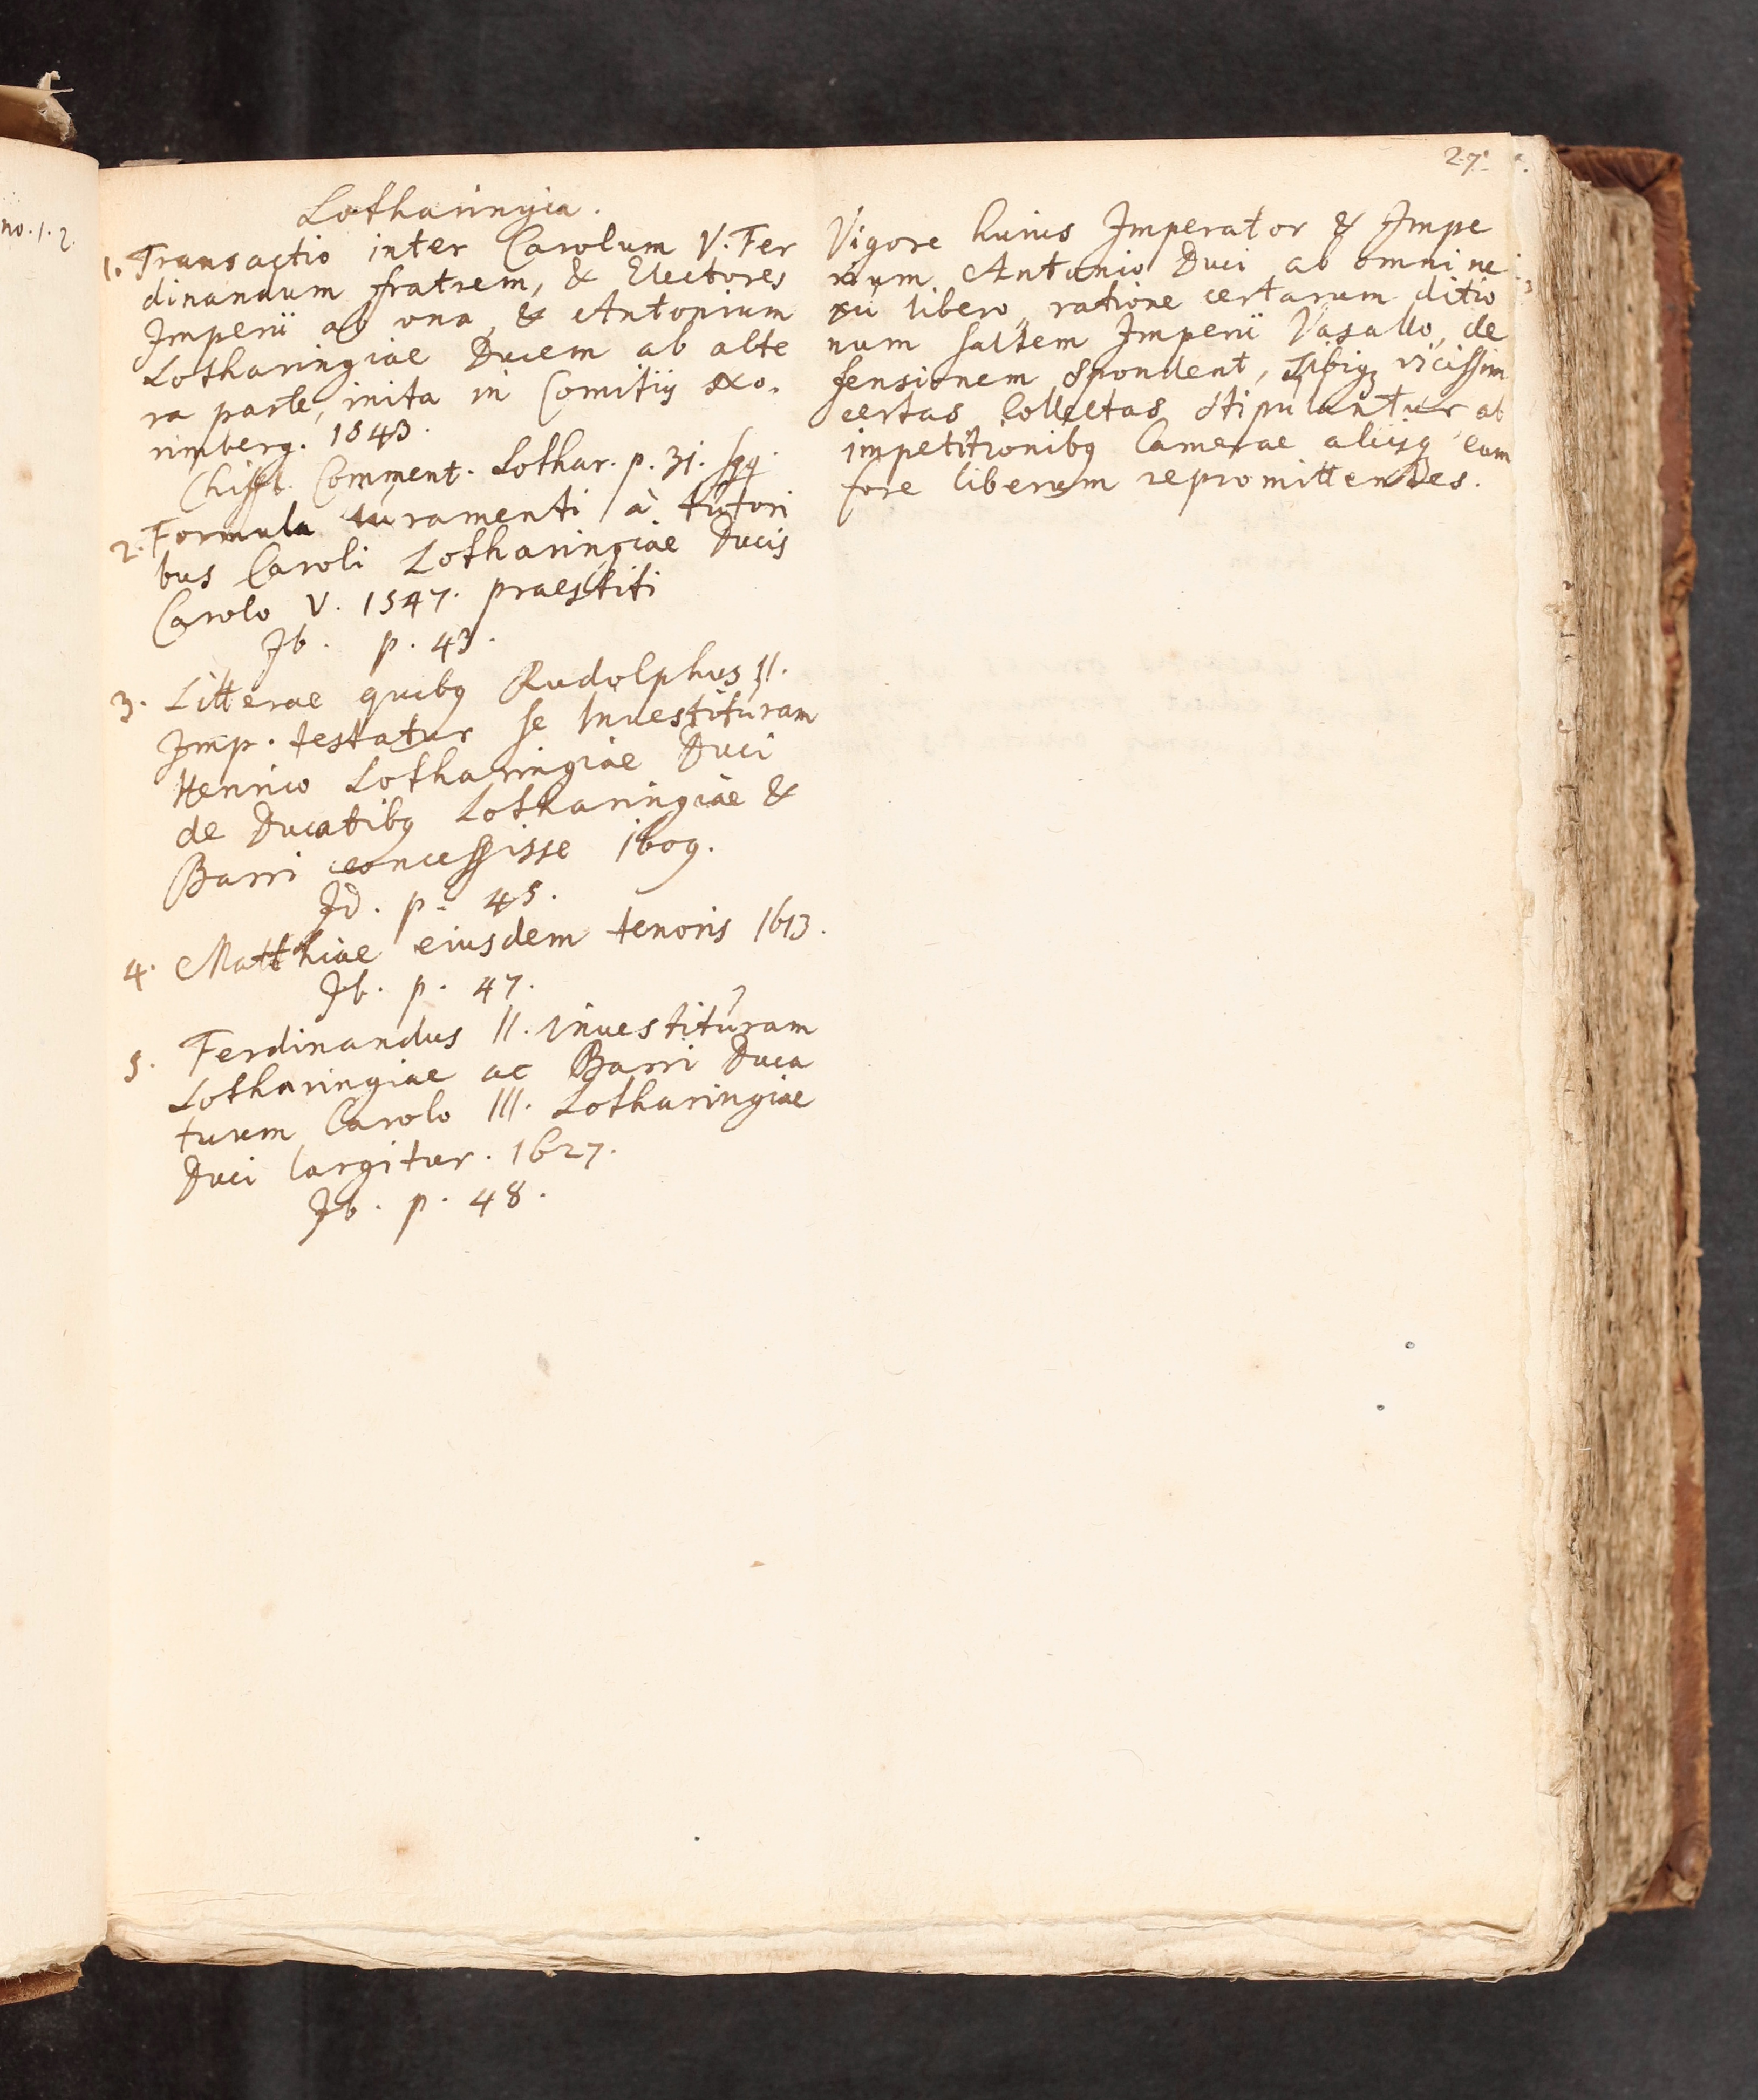 27.
no. 1. 2.
Lotharingia.
1. Transactio inter Carolum V. Fer
dinandum fratrem, & Electores
Imperii ab una, & Antonium
Lotharingiae Ducem ab alte
ra parte, inita in Comitiis No.
rimberg. 1543.
Chiffl. Comment. Lothar. p. 31. sqq.
2. Formula iuramenti à tutori
bus Caroli Lotharingiae Ducis
Carolo V. 1547. praestiti
Ib. p. 43.
3. Litterae quibq Rudolphus II.
Imp. testatur se Inuestituram
Henrico Lotharingiae Duci
de Ducatibq Lotharingiae &
Barri concessisse 1609.
Id. p. 45.
4. Matthiae eiusdem tenoris 1613.
Ib. p. 47.
5. Ferdinandus II. inuestituram
Lotharingiae ac Barri Duca
tuum Carolo III. Lotharingiae
Duci largitur. 1627.
Ib. p. 48.
Vigore huius Imperator & Impe
rium Antonio Duci ab omni ne
xu libero, ratione certarum ditio
num saltem Imperii Vasallo, de
fensionem spondent, sibiq vicissim
certas Collectas stipulantur ab
impetitionibq Camerae aliisq eum
fore liberum repromittendes.